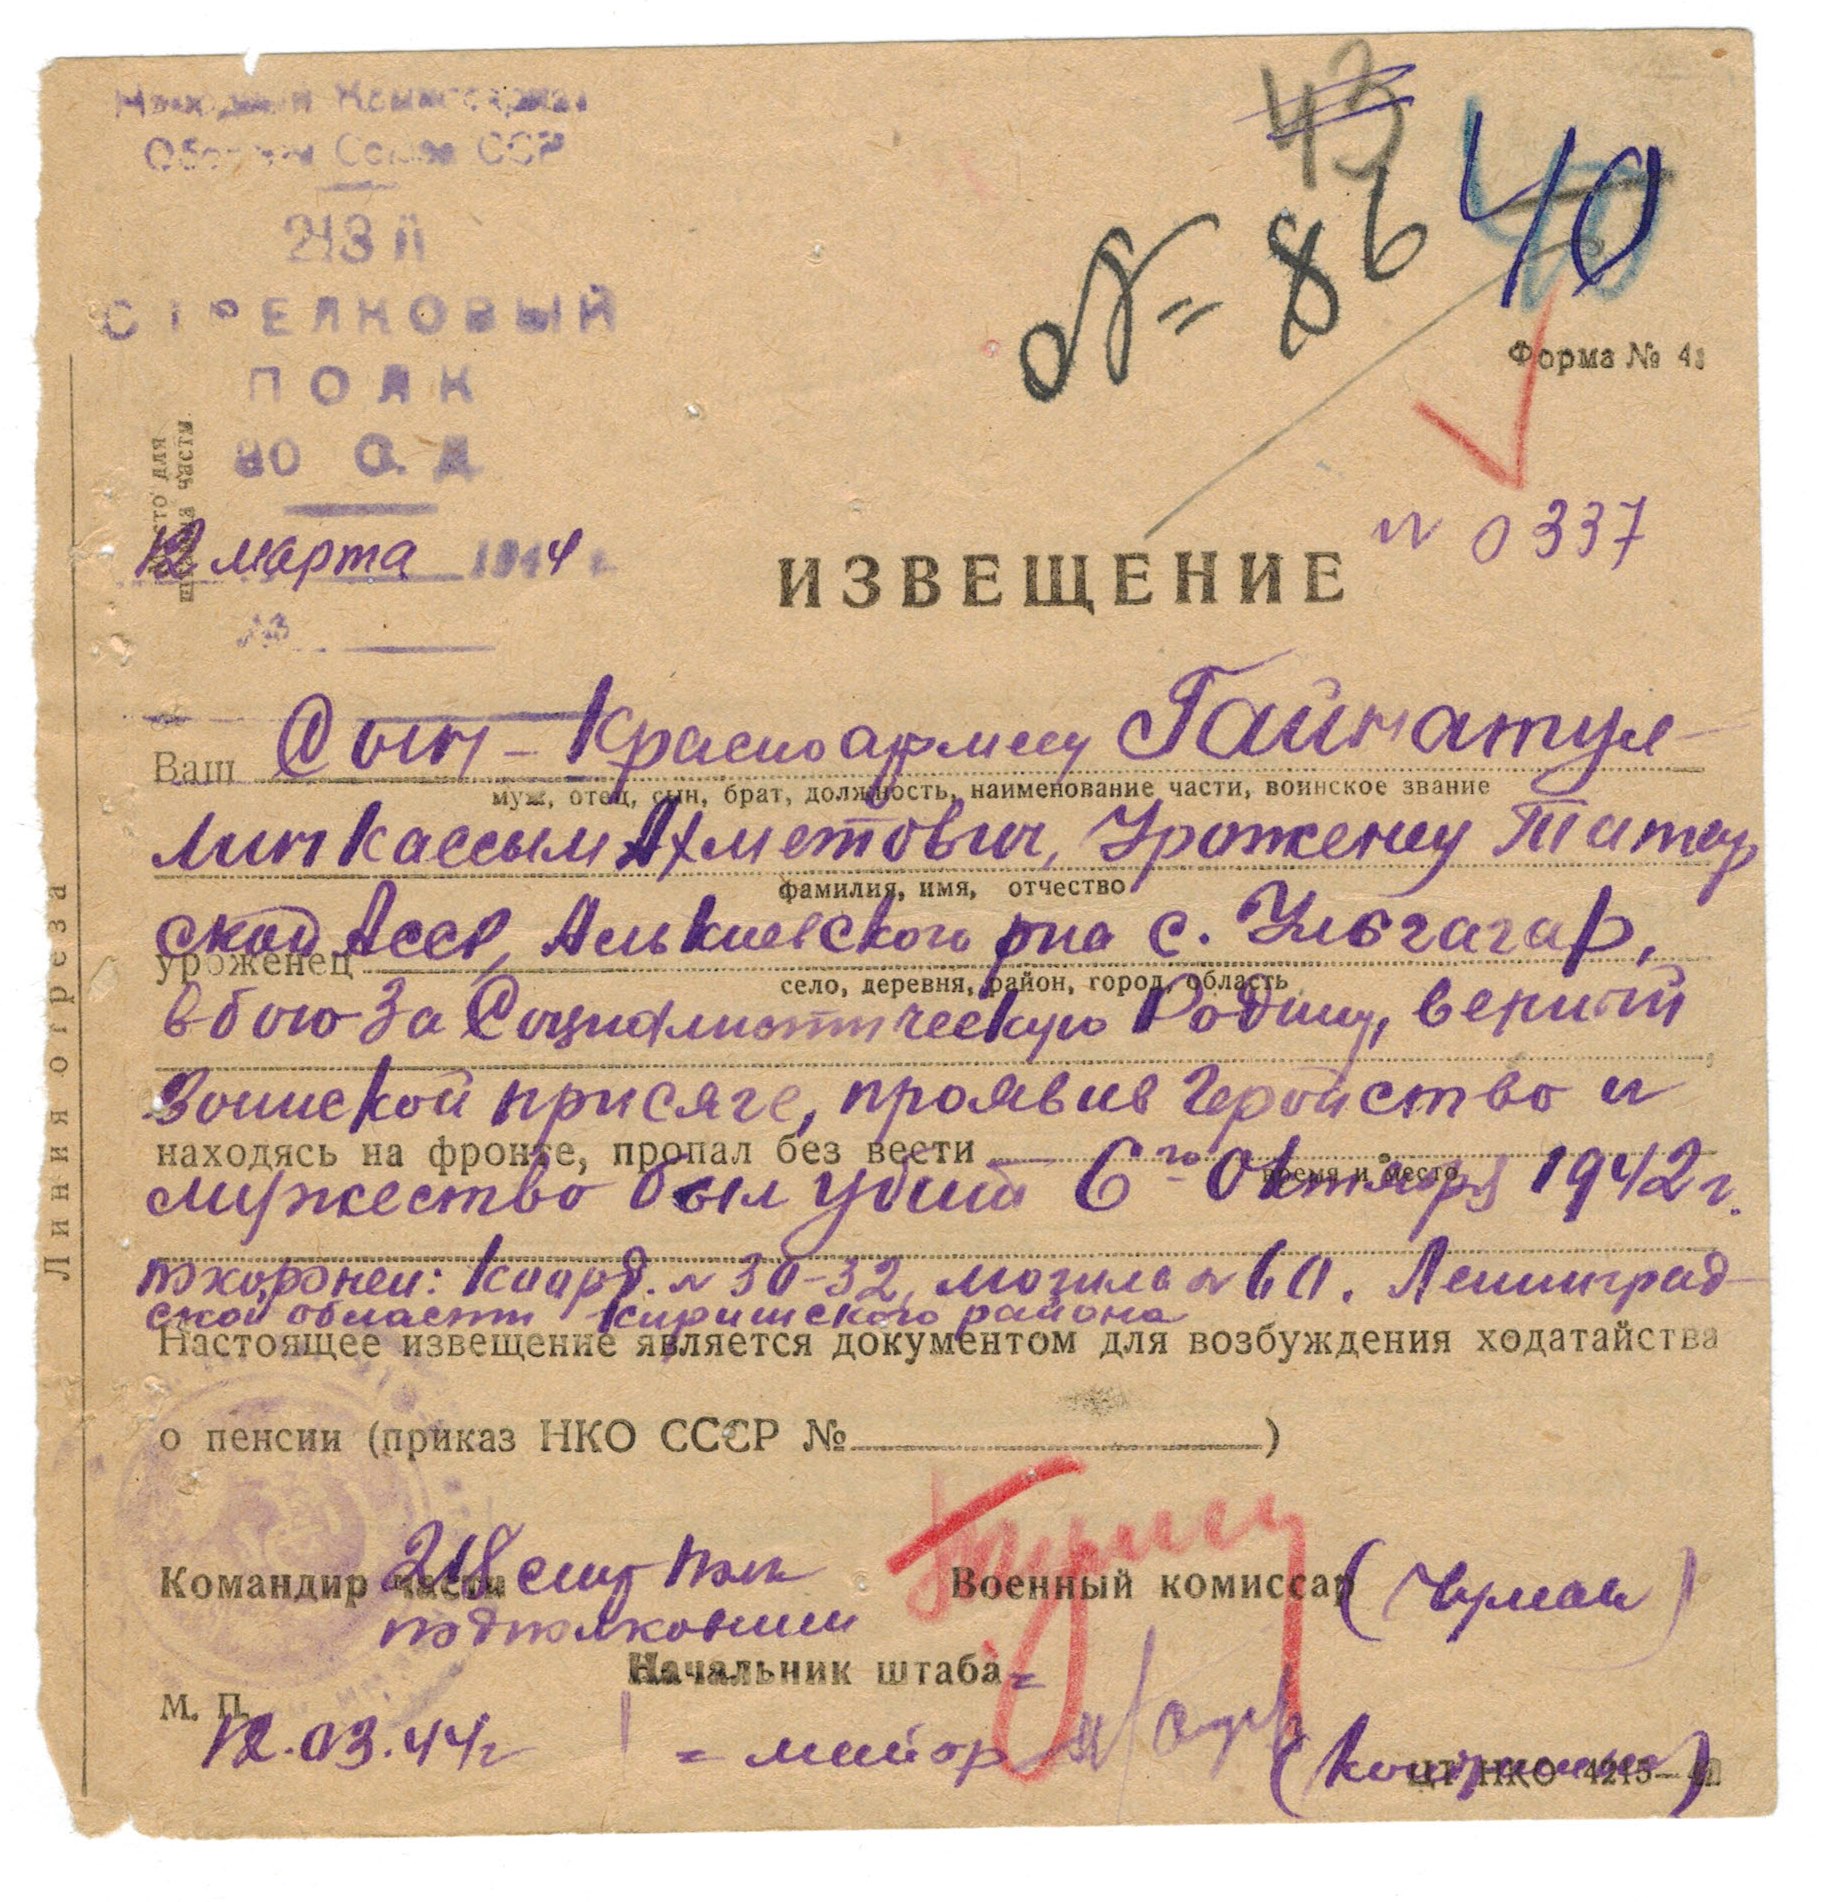 Народный Комиссариат
Обороны Союза ССР
СТРЕЛКОВЫЙ
ПОЛК
43
40
№ 86
Форма № 4
12 марта 1944 г.
№ 0337
ИЗВЕЩЕНИЕ
Ваш Сын - Красноармеец Гайнатул-
муж, отец, сын, брат, должность, наименование части, воинское звание
лин Кассым Ахметович, Уроженец Татар
фамилия, имя, отчество
ской АССР, Алькиевского р-на с.
уроженец
село, деревня, район, город, область
в бою за Социалистическую Родину, верный
Воинской присяге, проявив Геройство и
находясь на фронте, пропал без вести
время и место
мужество был убит 6го Октября 1942 г.
похоронен: квадр. № 30-32, могила № 60. Ленинград-
ской области Киришского района
Настоящее извещение является документом для возбуждения ходатайства
о пенсии (приказ НКО СССР № )
Командир части 218 стр полк
Военный комиссар
подполковник
Начальник штаба =
М. П.
12.03.44г
= майор
ЦТ НКО 4215—
Линия отреза